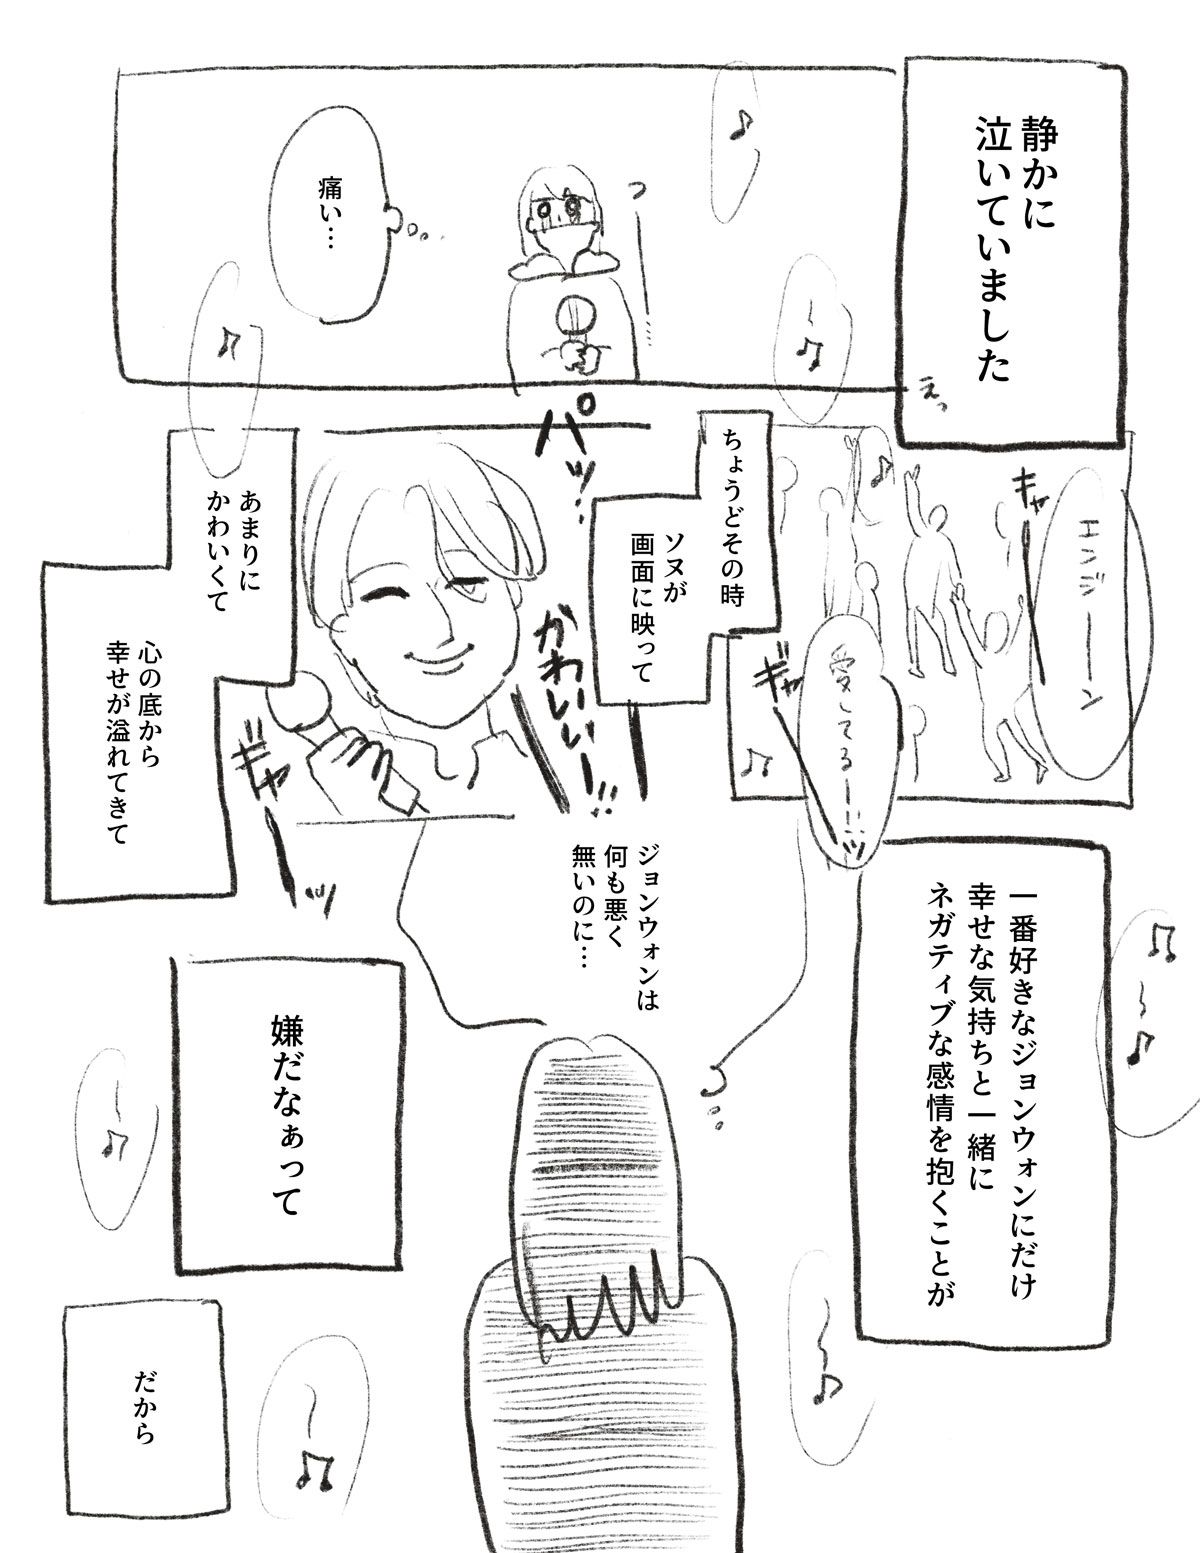 静かに
泣いていました
えっ
っ
痛い…
エンジーーン
キャ
愛してるー!!
ギャ
ッ
ちょうどその時
ソヌが
画面に映って
パッ
かわいいー!!
ギャ
ッ
あまりに
かわいくて
心の底から
幸せが溢れてきて
一番好きなジョンウォンにだけ
幸せな気持ちと一緒に
ネガティブな感情を抱くことが
ジョンウォンは
何も悪く
無いのに…
嫌だなぁって
だから